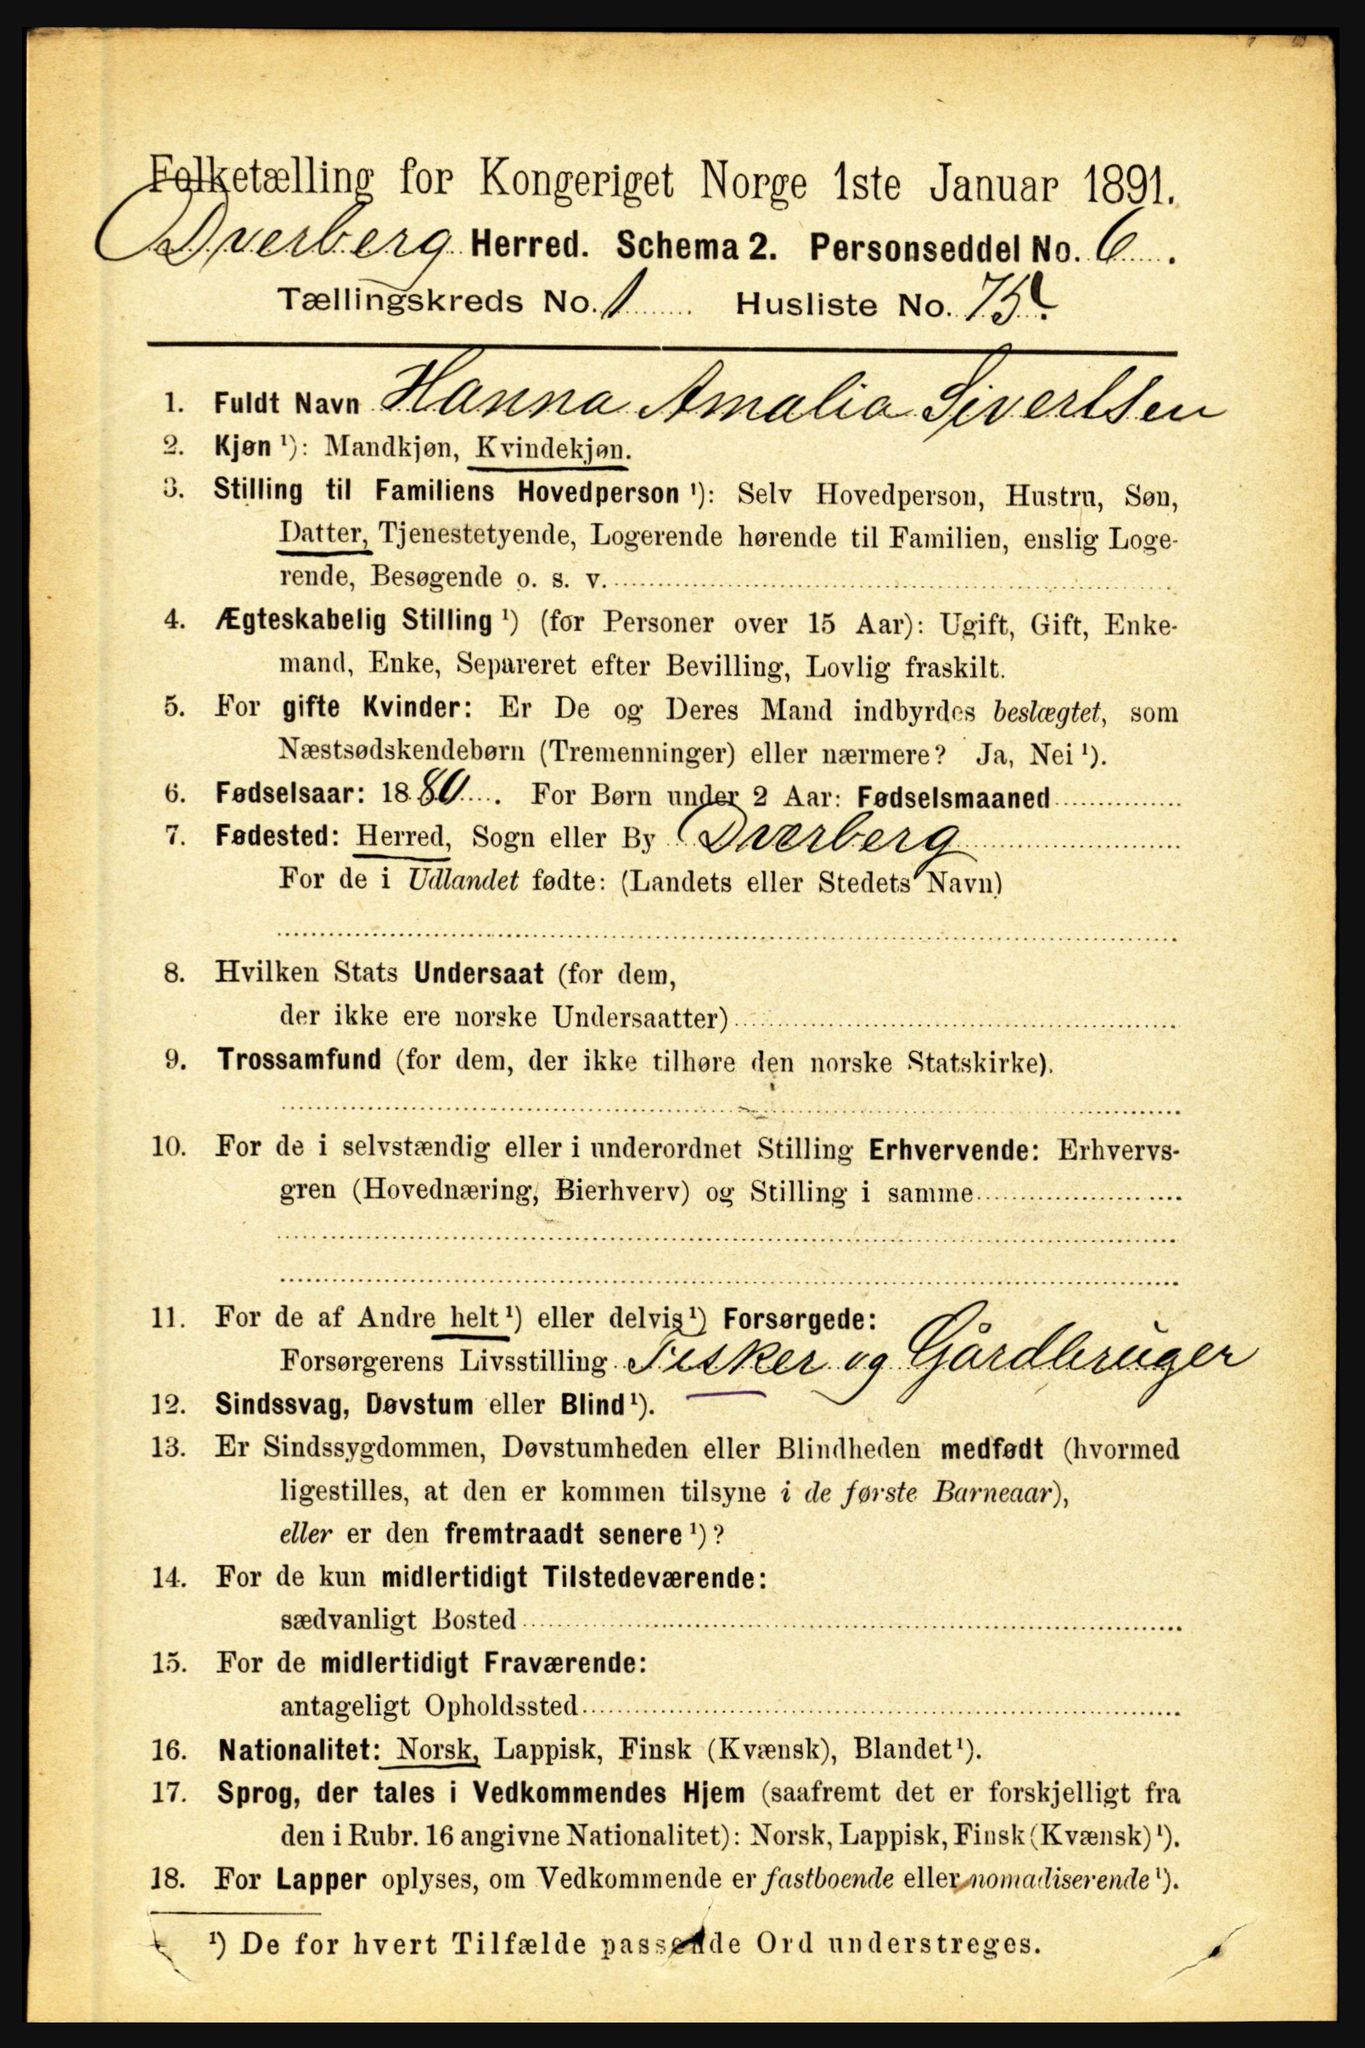 Folketælling for Kongeriget Norge 1ste Januar 1891.
Dverberg Herred. Schema 2. Personseddel No. 6.
Tællingskreds No. 1 Husliste No. 75.
1. Fuldt Navn Hanna Amalia Sivertsen
2. Kjøn ¹): Mandkjøn, Kvindekjøn.
3. Stilling til Familiens Hovedperson ¹): Selv Hovedperson, Hustru, Søn,
Datter, Tjenestetyende, Logerende hørende til Familien, enslig Loge-
rende, Besøgende o. s. v.
4. Ægteskabelig Stilling ¹) (for Personer over 15 Aar): Ugift, Gift, Enke-
mand, Enke, Separeret efter Bevilling, Lovlig fraskilt.
5. For gifte Kvinder: Er De og Deres Mand indbyrdes beslægtet, som
Næstsødskendebørn (Tremenninger) eller nærmere? Ja, Nei ¹).
6. Fødselsaar: 1880. For Børn under 2 Aar: Fødselsmaaned
7. Fødested: Herred, Sogn eller By Dverberg
For de i Udlandet fødte: (Landets eller Stedets Navn)
8. Hvilken Stats Undersaat (for dem,
der ikke ere norske Undersaatter)
9. Trossamfund (for dem, der ikke tilhøre den norske Statskirke).
10. For de i selvstændig eller i underordnet Stilling Erhvervende: Erhvervs-
gren (Hovednæring, Bierhverv) og Stilling i samme
11. For de af Andre helt ¹) eller delvis ¹) Forsørgede:
Forsørgerens Livsstilling Fisker og Gårdbruger
12. Sindssvag, Døvstum eller Blind ¹).
13. Er Sindssygdommen, Døvstumheden eller Blindheden medfødt (hvormed
ligestilles, at den er kommen tilsyne i de første Barneaar),
eller er den fremtraadt senere ¹)?
14. For de kun midlertidigt Tilstedeværende:
sædvanligt Bosted
15. For de midlertidigt Fraværende:
antageligt Opholdssted
16. Nationalitet: Norsk, Lappisk, Finsk (Kvænsk), Blandet ¹).
17. Sprog, der tales i Vedkommendes Hjem (saafremt det er forskjelligt fra
den i Rubr. 16 angivne Nationalitet): Norsk, Lappisk, Finsk (Kvænsk) ¹).
18. For Lapper oplyses, om Vedkommende er fastboende eller nomadiserende ¹).
¹) De for hvert Tilfælde passende Ord understreges.